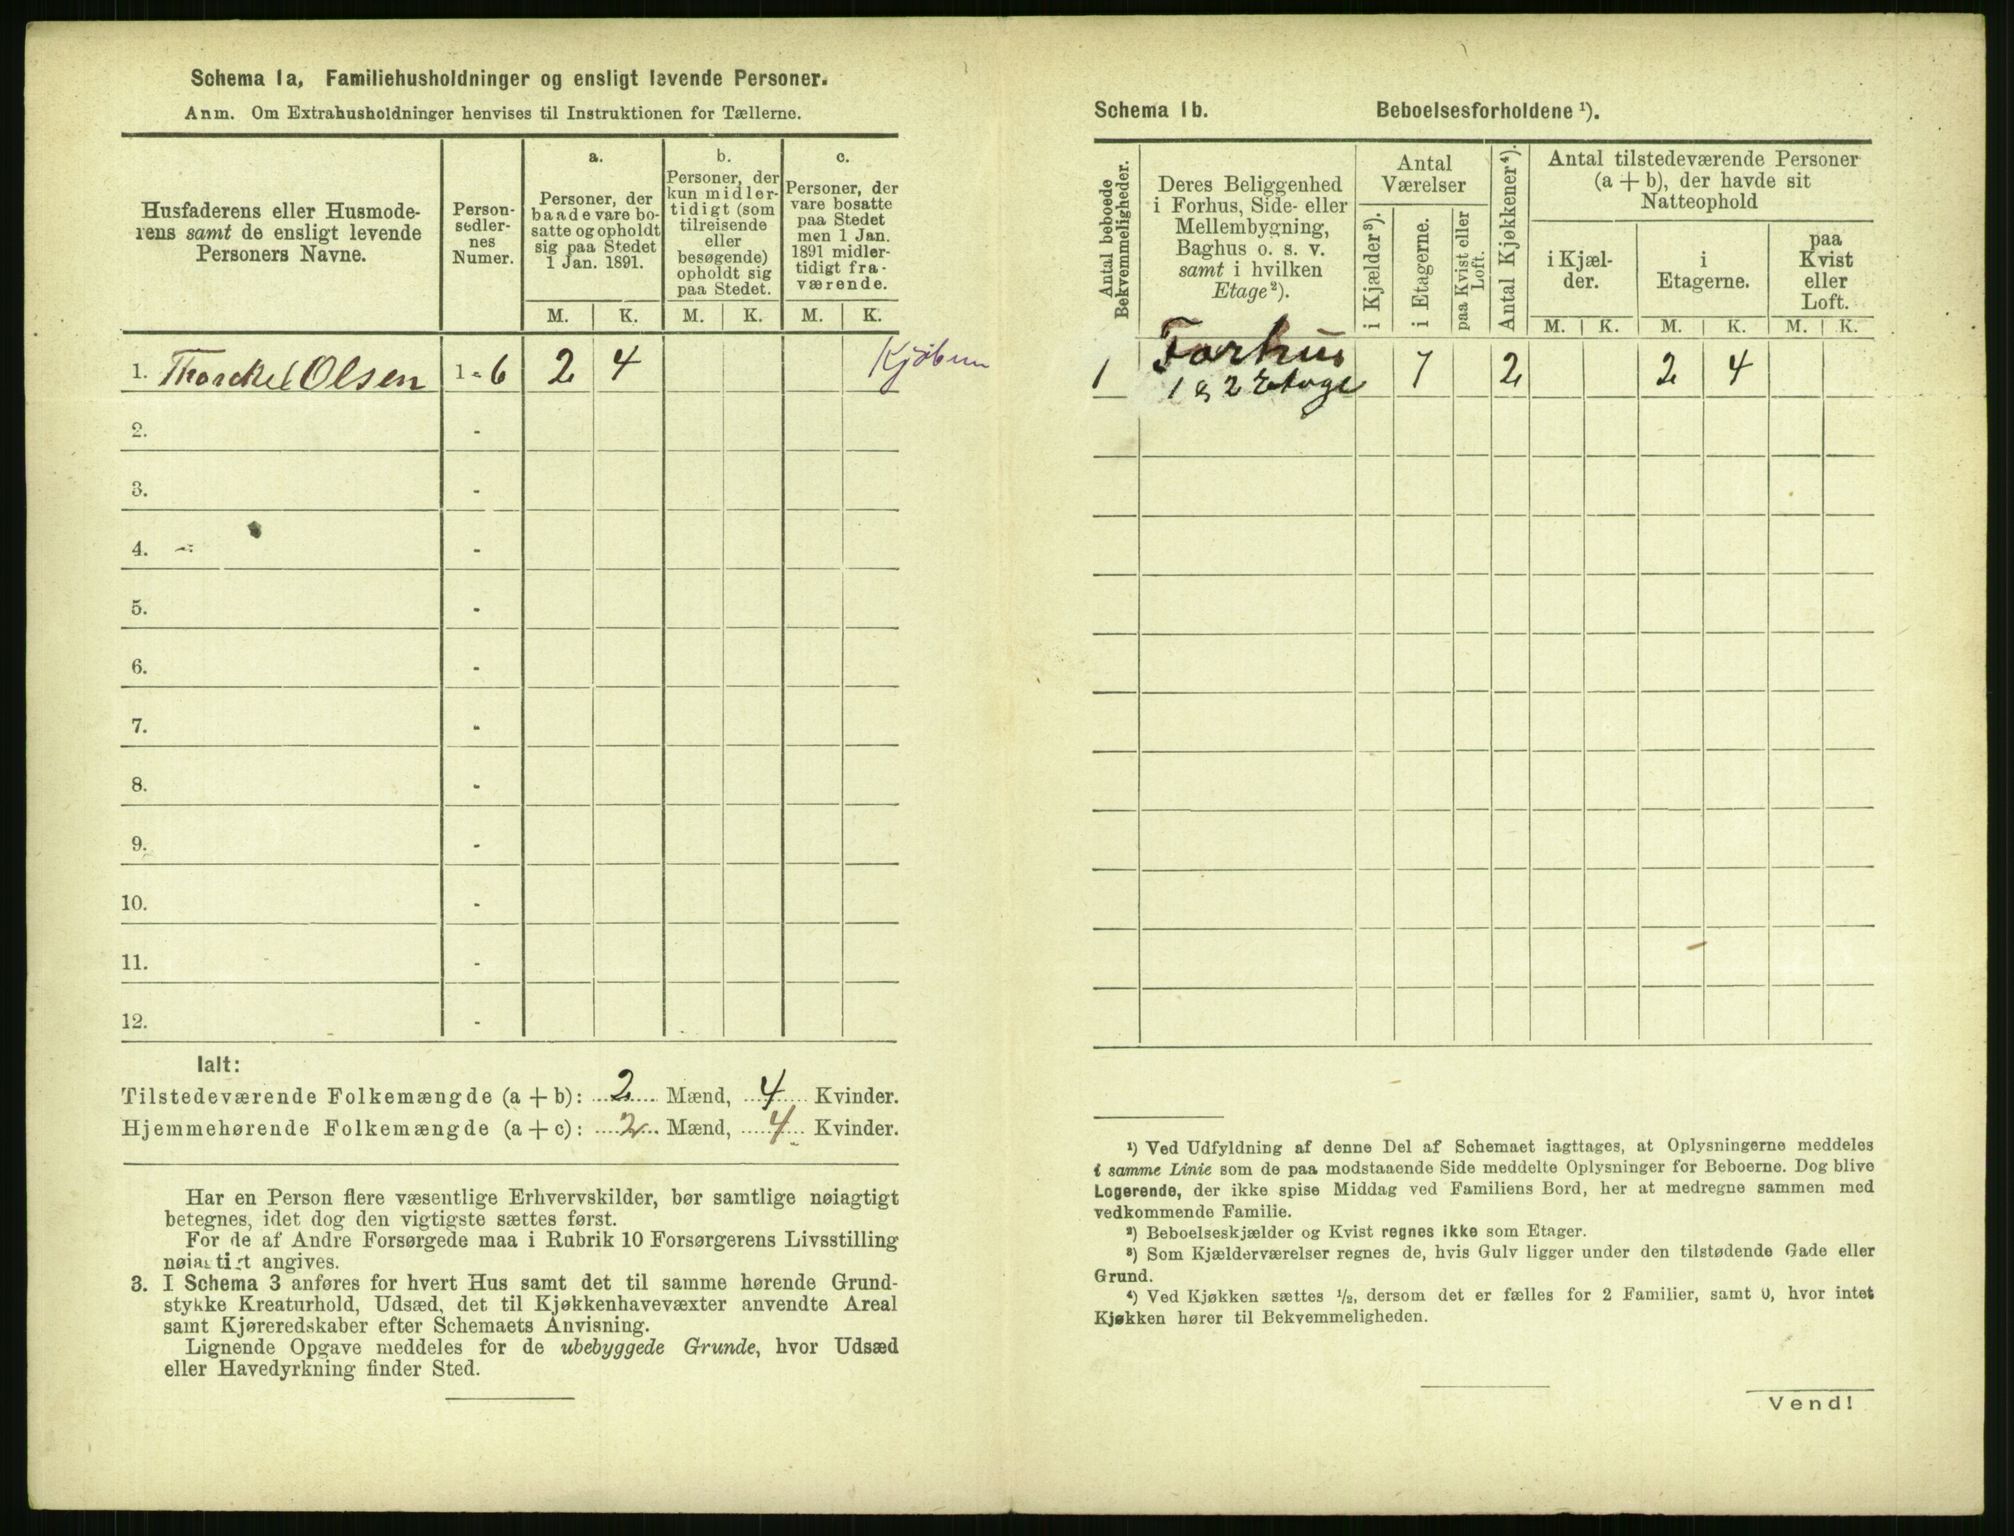 Schema 1a, Familiehusholdninger og ensligt levende Personer.
Anm. Om Extrahusholdninger henvises til Instruktionen for Tællerne.
Husfaderens eller Husmode-
rens samt de ensligt levende
Personers Navne.
Person-
sedler-
nes
Numer.
a.
Personer, der
baade vare bo-
satte og opholdt
sig paa Stedet
1 Jan. 1891.
b.
Personer, der
kun midler-
tidigt (som
tilreisende
eller
besøgende)
opholdt sig
paa Stedet.
c.
Personer, der
vare bosatte
paa Stedet
men 1 Jan.
1891 midler-
tidigt fra-
værende.
M. K. M. K. M. K.
1. Thorckel Olsen 1-6 2 4
2. -
3. -
4. -
5. -
6. -
7. -
8. -
9. -
10. -
11. -
12. -
Ialt:
Tilstedeværende Folkemængde (a + b): 2 Mænd, 4 Kvinder.
Hjemmehørende Folkemængde (a + c): 2 Mænd, 4 Kvinder.
Har en Person flere væsentlige Erhvervskilder, bør samtlige nøiagtigt
betegnes, idet dog den vigtigste sættes først.
For de af Andre Forsørgede maa i Rubrik 10 Forsørgerens Livsstilling
nøiagtigt angives.
3. I Schema 3 anføres for hvert Hus samt det til samme hørende Grund-
stykke Kreaturhold, Udsæd, det til Kjøkkenhavevæxter anvendte Areal
samt Kjøreredskaber efter Schemaets Anvisning.
Lignende Opgave meddeles for de ubebyggede Grunde, hvor Udsæd
eller Havedyrkning finder Sted.
Schema 1b. Beboelsesforholdene ¹).
Antal beboede
Bekvemmeligheder.
Deres Beliggenhed
i Forhus, Side- eller
Mellembygning,
Baghus o. s. v.
samt i hvilken
Etage²).
Antal
Værelser
i Kjælder³).
i Etagerne.
paa Kvist eller
Loft.
Antal Kjøkkener⁴).
Antal tilstedeværende Personer
(a + b), der havde sit
Natteophold
i Kjæl-
der.
i
Etagerne.
paa
Kvist
eller
Loft.
M. K. M. K. M. K.
1 Forhus 7 2 2 4
1 & 2 Etage
¹) Ved Udfyldning af denne Del af Schemaet iagttages, at Oplysningerne meddeles
i samme Linie som de paa modstaaende Side meddelte Oplysninger for Beboerne. Dog blive
Logerende, der ikke spise Middag ved Familiens Bord, her at medregne sammen med
vedkommende Familie.
²) Beboelseskjælder og Kvist regnes ikke som Etager.
³) Som Kjælderværelser regnes de, hvis Gulv ligger under den tilstødende Gade eller
Grund.
⁴) Ved Kjøkken sættes ½, dersom det er fælles for 2 Familier, samt 0, hvor intet
Kjøkken hører til Bekvemmeligheden.
Vend!